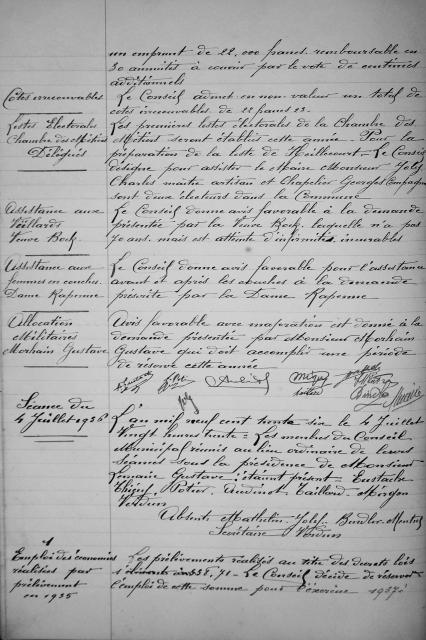 un emprunt de 22.000 francs remboursable en
30 annuités à couvrir par le vote de centimes
additionnels
Cotes irrecouvrables
Le Conseil admet en non valeur un total de
cotes irrecouvrables de 22 francs 23.
Listes Electorales
Chambre des Métiers
Délégués
Les premières listes électorales de la Chambre des
Métiers seront établies cette année. Pour la
préparation de la liste de Le Conseil
désigne pour assister le Maire Monsieur
Charles maître artisan et Chapelier Georges Compagnon
sont deux électeurs dans la Commune
Assistance aux
Vieillards
Veuve Bock
Le Conseil donne avis favorable à la demande
présentée par la Veuve Bock, laquelle n'a pas
70 ans. mais est atteinte d'infirmités incurables
Assistance aux
femmes en couches.
Dame Raponne
Le Conseil donne avis favorable pour l'assistance
avant et après les couches à la demande
présentée par la Dame Raponne
Allocation
Militaires
Morhain Gustave
Avis favorable avec majoration est donné à la
demande présentée par Monsieur Morhain
Gustave qui doit accomplir une période
de réserve cette année
Séance du
4 Juillet 1936
L'an mil neuf cent trente six le 4 Juillet
Vingt heures trente = Les membres du Conseil
Municipal réunis au lieu ordinaire de leurs
séances sous la présidence de Monsieur
Lemaire Gustave : étaient présent = Eustache
Potier, Audinot, Taillard,
Verdun
Absents Mathelin,
Secrétaire Verdun
Emploi des économies
réalisées par
prélèvement
en 1935
Les prélèvements réalisés au titre des decrets lois
s'élevant à 338,71 - Le Conseil décide de réserver
l'emploi de cette somme pour l'exercice 1937